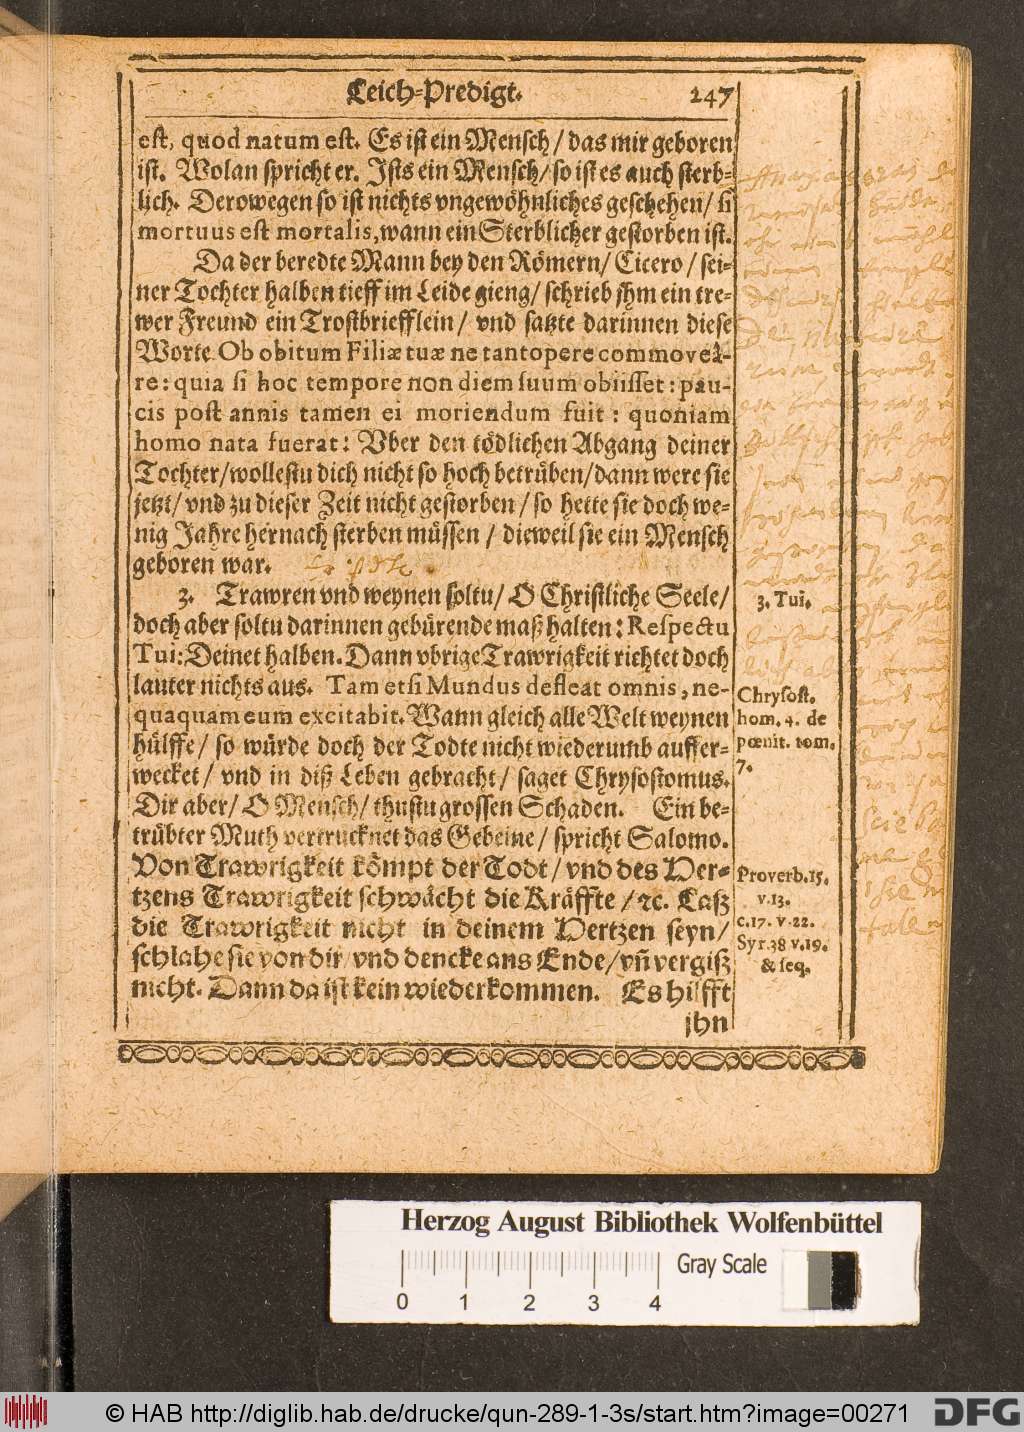 Leich-Predigt. 247
est, quod natum est. Es ist ein Mensch / das mir geboren
ist. Wolan spricht er. Ists ein Mensch / so ist es auch sterb-
lich. Derowegen so ist nichts vngewöhnliches geschehen / si
mortuus est mortalis, wann ein Sterblicher gestorben ist.
Da der beredte Mann bey den Römern / Cicero / sei-
ner Tochter halben tieff im Leide gieng / schrieb jhm ein tre-
wer Freund ein Trostbriefflein / vnd satzte darinnen diese
Worte Ob obitum Filiæ tuæ ne tantopere commovea-
re: quia si hoc tempore non diem suum obiisset: pau-
cis post annis tamen ei moriendum fuit: quoniam
homo nata fuerat: Vber den tödlichen Abgang deiner
Tochter / wollestu dich nicht so hoch betrüben / dann were sie
jetzt / vnd zu dieser Zeit nicht gestorben / so hette sie doch we-
nig Jahre hernach sterben müssen / dieweil sie ein Mensch
geboren war.
3. Trawren vnd weynen soltu / O Christliche Seele /
doch aber soltu darinnen gebürende maß halten: Respectu
Tui: Deinet halben. Dann vbrige Trawrigkeit richtet doch
lauter nichts aus. Tametsi Mundus defleat omnis, ne-
quaquam eum excitabit. Wann gleich alle Welt weynen
hülffe / so würde doch der Todte nicht wiederumb auffer-
wecket / vnd in diß Leben gebracht / saget Chrysostomus.
Dir aber / O Mensch / thustu grossen Schaden. Ein be-
trübter Muth vertrucknet das Gebeine / spricht Salomo.
Von Trawrigkeit kömpt der Todt / vnd des Her-
tzens Trawrigkeit schwächt die Kräffte / ꝛc. Laß
die Trawrigkeit nicht in deinem Hertzen seyn /
schlahe sie von dir vnd dencke ans Ende / vñ vergiß
nicht. Dann da ist kein wiederkommen. Es hilfft
jhn
3. Tui.
Chrysost.
hom. 4. de
pœnit. tom.
7.
Proverb. 15.
v. 13.
c. 17. v. 22.
Syr. 38 v. 19.
& seq.
Herzog August Bibliothek Wolfenbüttel
Gray Scale
0 1 2 3 4
© HAB http://diglib.hab.de/drucke/qun-289-1-3s/start.htm?image=00271
DFG